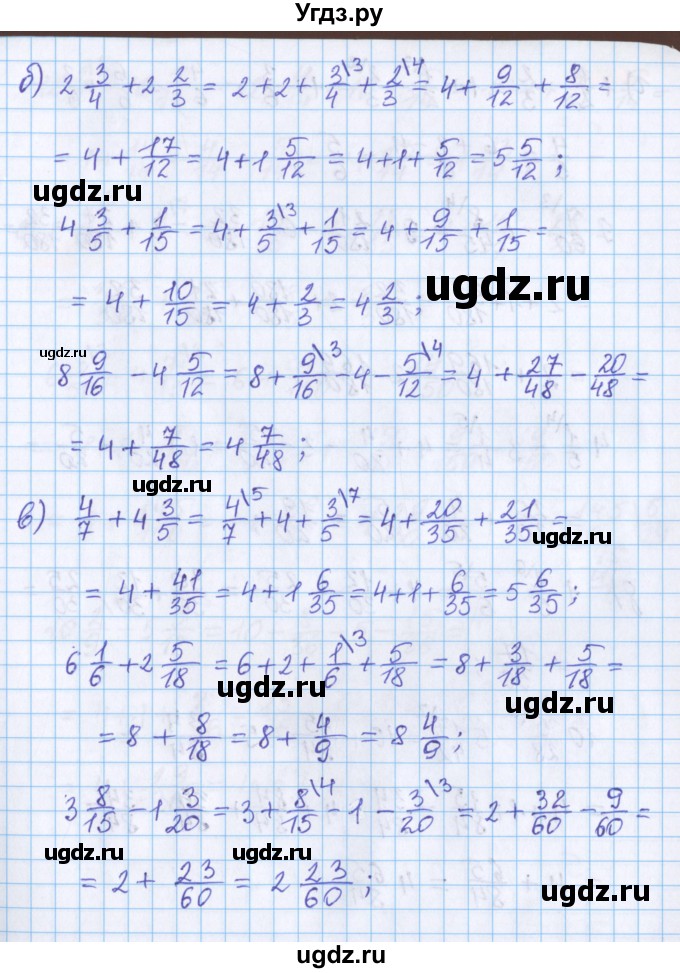 Угдз.ру
б) 2 3/4 + 2 2/3 = 2 + 2 + 3\3/4 + 2\4/3 = 4 + 9/12 + 8/12 =
= 4 + 17/12 = 4 + 1 5/12 = 4 + 1 + 5/12 = 5 5/12 ;
ugdz.ru
4 3/5 + 1/15 = 4 + 3\3/5 + 1/15 = 4 + 9/15 + 1/15 =
ugdz.ru
= 4 + 10/15 = 4 + 2/3 = 4 2/3 ;
ugdz.ru
8 9/16 - 4 5/12 = 8 + 9\3/16 - 4 - 5\4/12 = 4 + 27/48 - 20/48 =
= 4 + 7/48 = 4 7/48 ;
ugdz.ru
в) 4/7 + 4 3/5 = 4\5/7 + 4 + 3\7/5 = 4 + 20/35 + 21/35 =
ugdz.ru
= 4 + 41/35 = 4 + 1 6/35 = 4 + 1 + 6/35 = 5 6/35 ;
6 1/6 + 2 5/18 = 6 + 2 + 1\3/6 + 5/18 = 8 + 3/18 + 5/18 =
ugdz.ru
ugdz.ru
= 8 + 8/18 = 8 + 4/9 = 8 4/9 ;
3 8/15 - 1 3/20 = 3 + 8\4/15 - 1 - 3\3/20 = 2 + 32/60 - 9/60 =
ugdz.ru
ugdz.ru
ugdz.ru
= 2 + 23/60 = 2 23/60 ;
ugdz.ru
ugdz.ru